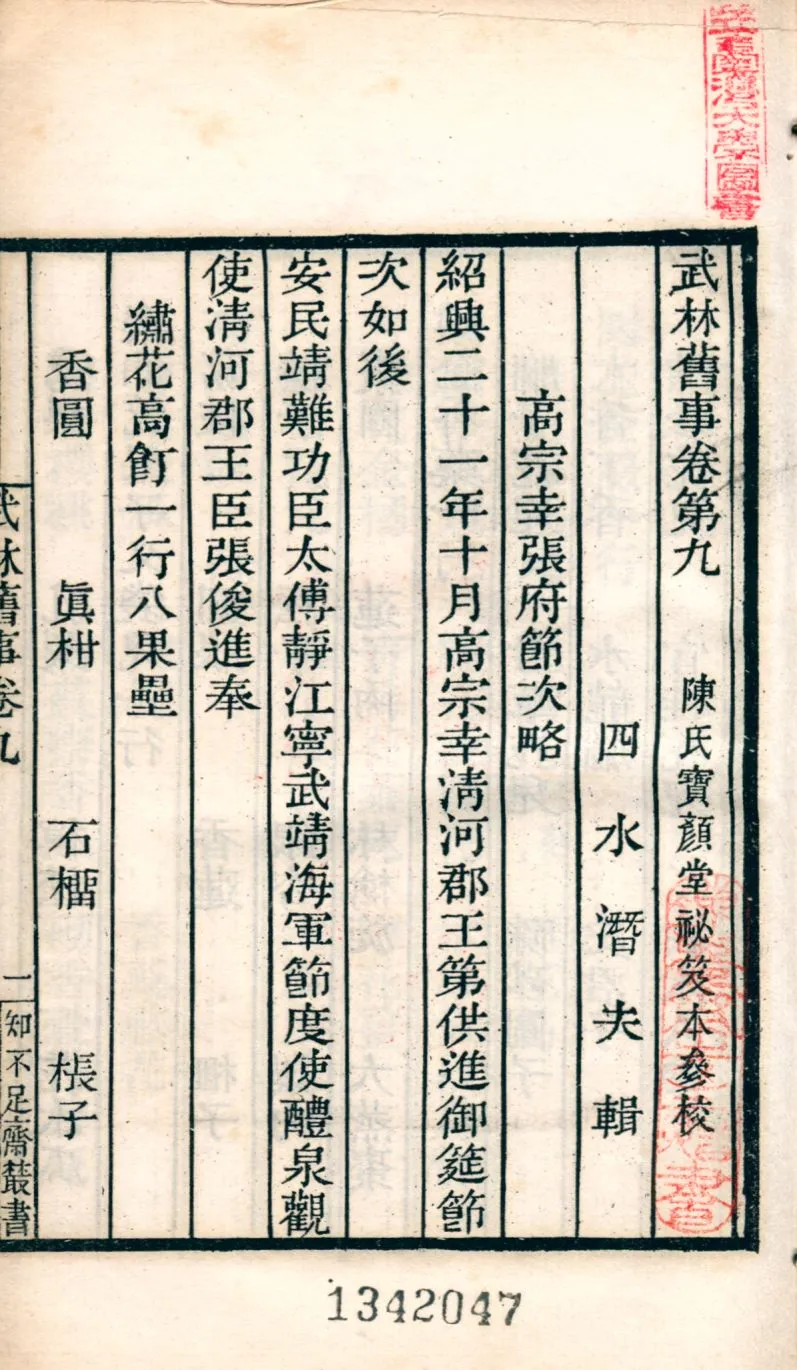 武林舊事卷第九　陳氏寶顏堂祕笈本參校
四水潛夫輯
高宗幸張府節次略
紹興二十一年十月高宗幸淸河郡王第供進御筵節
次如後
安民靖難功臣太傅靜江寧武靖海軍節度使醴泉觀
使淸河郡王臣張俊進奉
繡花高飣一行八果壘
香圓　眞柑　石橊　棖子
武林舊事卷九　一　知不足齋叢書
1342047